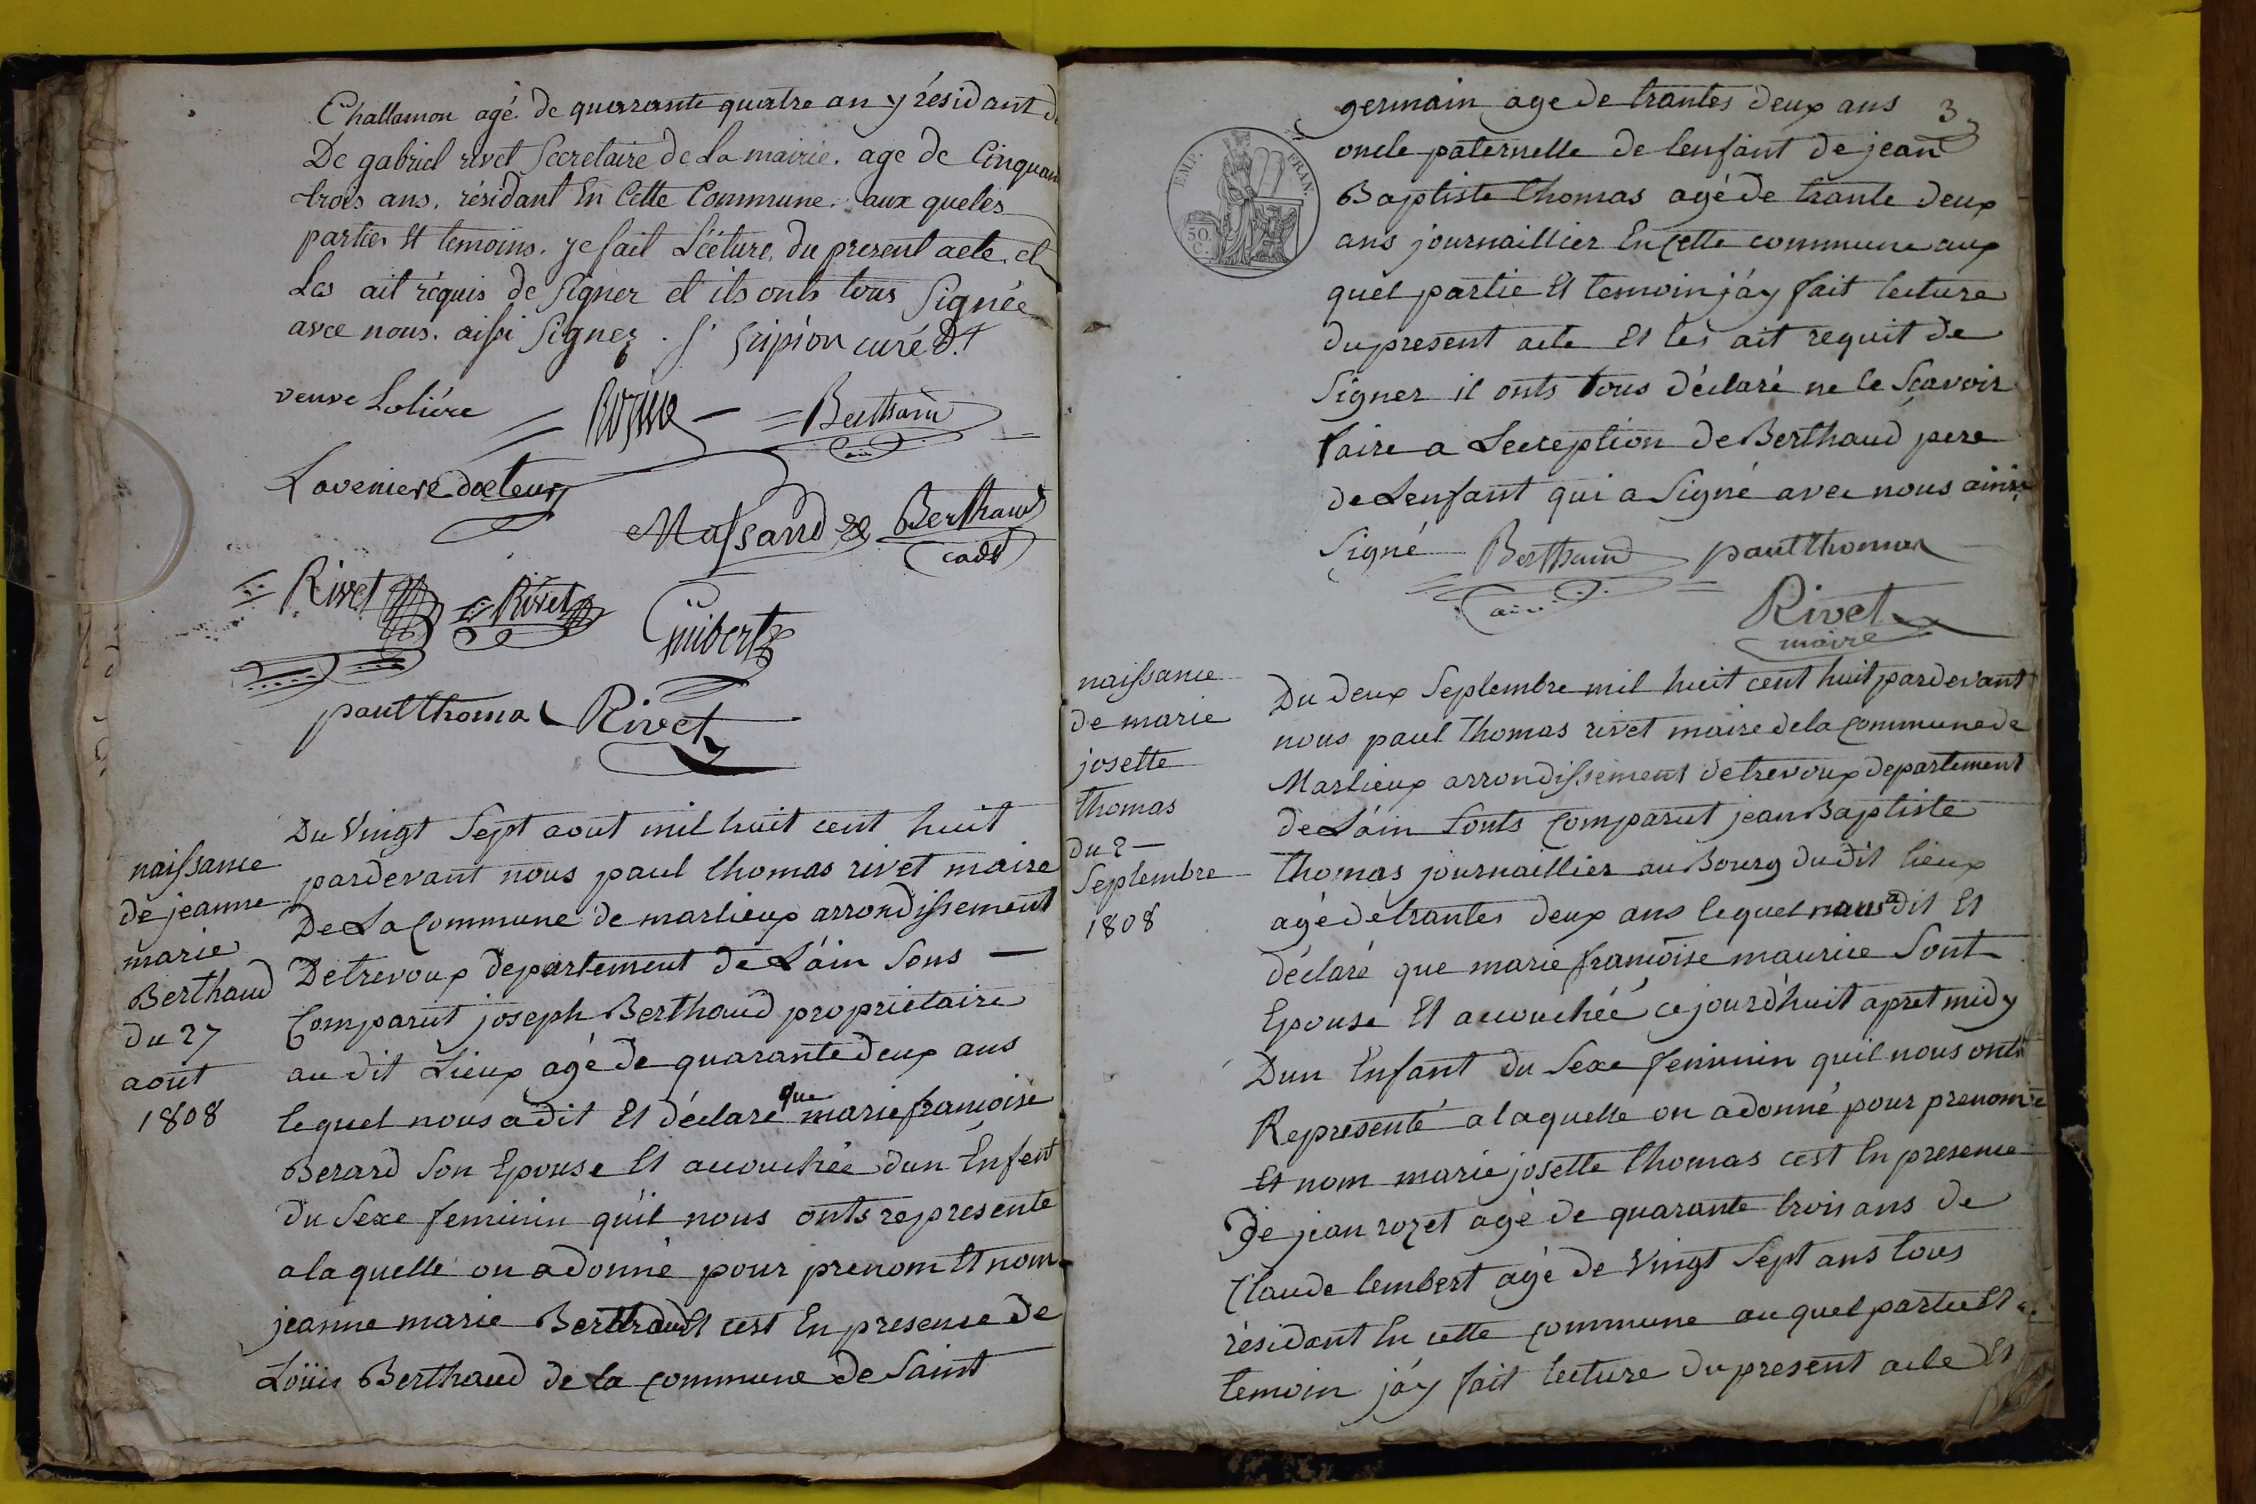 Challamon agé de quarante quatre an y résidant
De gabriel rivet Secretaire de La mairie. age de Cinquan
trois ans. résidant En Cette Commune. aux queles
parties Et temoins. je fait Lecture, du present acte. et
Les ait réquis de Signer et ils onts tous Signée
avec nous. aissi Signez . curé
veuve Loliére
Berthaud
Laveniere docteur
Massard Berthaud
cadet
Rivet Rivet Guibert
paul thomas Rivet
naissance
de jeanne
marie
Berthaud
du 27
aout
1808
Du Vingt Sept aout mil huit cent huit
pardevant nous paul thomas rivet maire
De La Commune de marlieux arrondissement
De trevoux departement de L'áin Sons —
Comparut joseph Berthaud propriétaire
au dit Lieux agé de quarante deux ans
lequel nous a dit Et déclaré que marie francoise
Berard Son Epouse Et acouchée dun Enfent
du Sexe feminin qu'il nous onts represente
a la quelle on a donné pour prenom Et nom
jeanne marie Berthaud Et cest En presense de
Loüis Berthaud de la commune de Saint
3
EMP. FRAN.
50
C.
germain age de trantes deux ans
oncle paternelle de lenfant de jean
Baptiste thomas agé de trante deux
ans journaillier En Cette commune aux
quel partie Et temoin j'áy fait lecture
du present acte Et les ait requit de
Signer il onts tous déclaré ne le Scavoir
faire a Lecception de Berthaud pere
de Lenfant qui a Signé avec nous ainsi
Signé Berthaud paul thomas
Rivet
maire
naissance
de marie
josette
thomas
du 2 —
Septembre
1808
Du deux Septembre mil huit cent huit pardevant
nous paul thomas rivet maire de la Commune de
Marlieux arrondissement de trevoux departement
de L'áin Sonts Comparut jean Baptiste
thomas journaillier au Bourg du dit lieux
agé de trantes deux ans lequel nous a dit Et
déclaré que marie francoise maurice Sont
Epouse Et acouchéé ce jourd'huit apret midy
Dun Enfant du Sexe feminin quil nous onts
Representé a laquelle on a donné pour prenom
Et nom marie josette thomas cest En presence
De jean rozet agé de quarante trois ans de
Claude lembert agé de Vingt Sept ans tous
résidant En cette commune au quel partie Et
temoin j'áy fait lecture du present acte Et